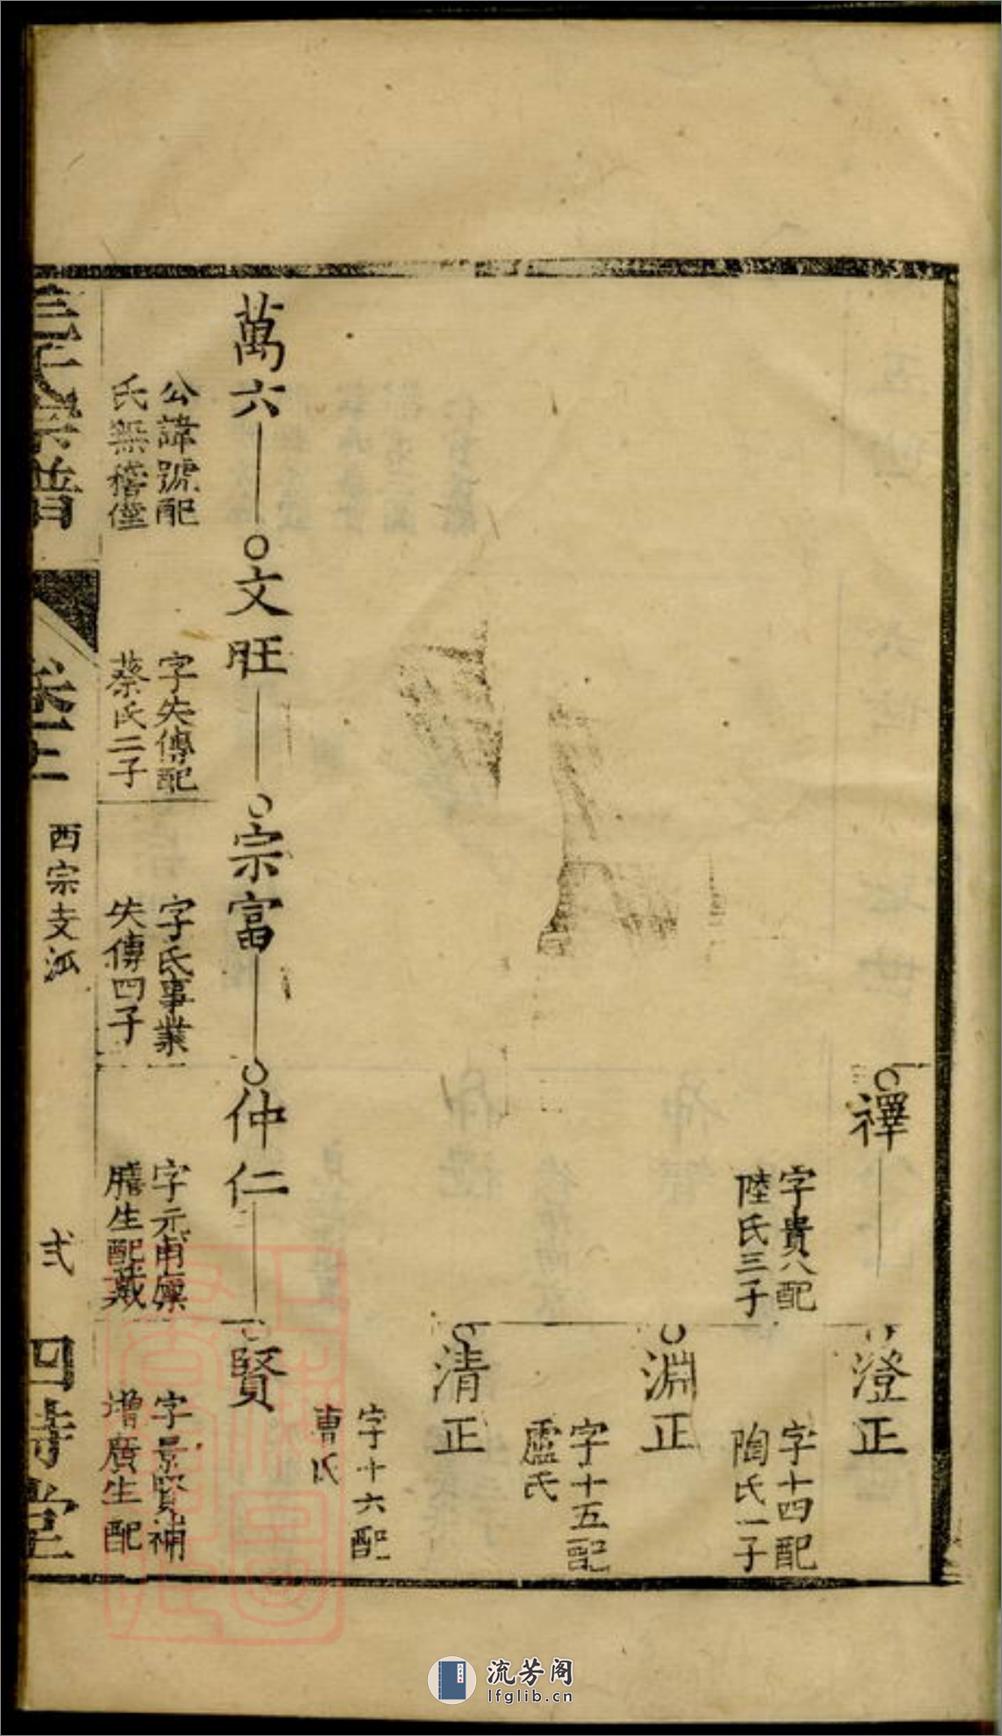 禪
字貴八配
陸氏三子
澄正
字十四配
陶氏一子
淵正
字十五配
盧氏
清正
字十六配
曹氏
萬六
公諱號配
氏無稽僅
文旺
字失傳配
蔡氏二子
宗富
字氏事業
失傳四子
仲仁
字元甫廩
膳生配戴
賢
字景賢補
增廣生配
氏宗譜
卷二
西宗支派
弍
四詩堂
流芳阁
lfglib.cn